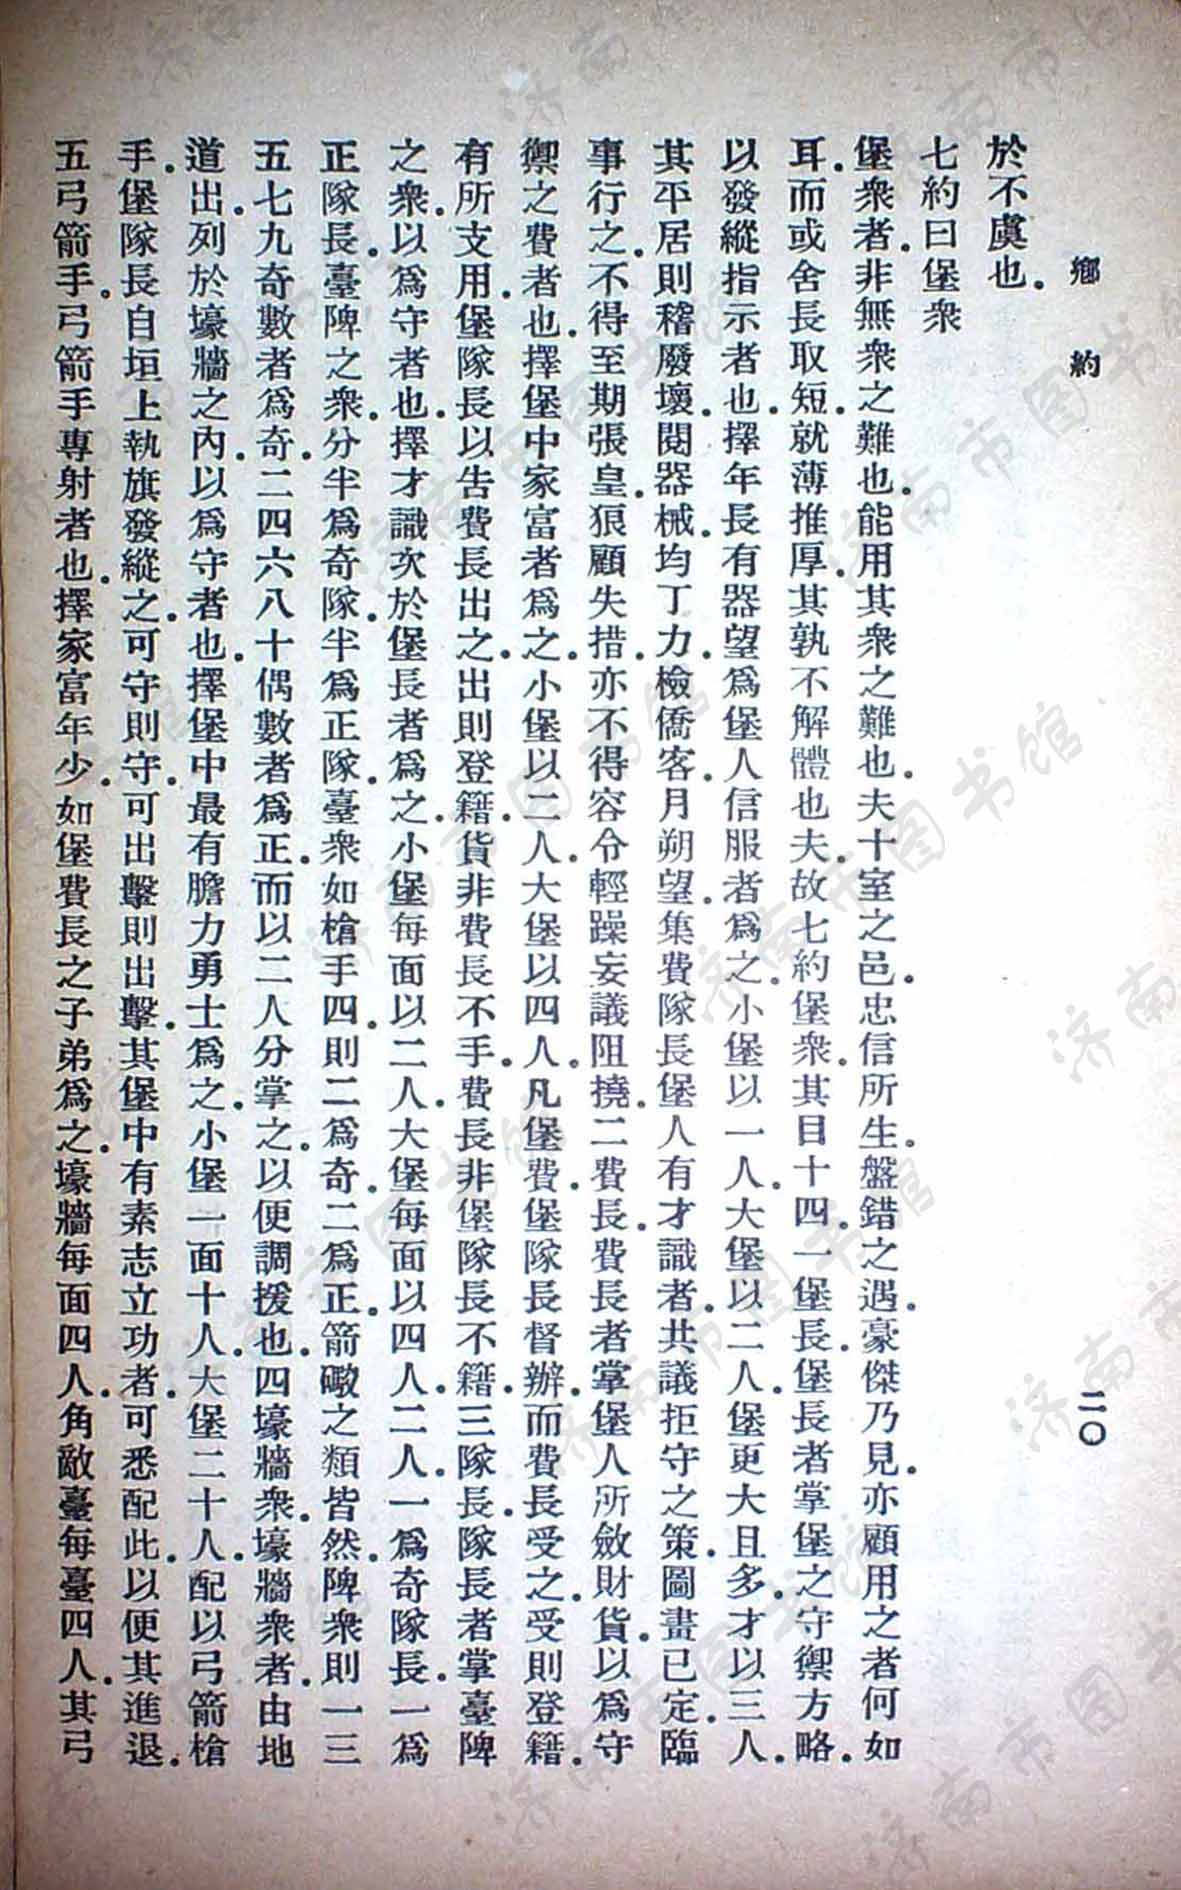 鄉約
二〇
於不虞也．
七約曰堡衆
堡衆者．非無衆之難也．能用其衆之難也．夫十室之邑．忠信所生．盤錯之遇．豪傑乃見．亦顧用之者何如
耳．而或舍長取短．就薄推厚．其孰不解體也夫．故七約堡衆．其目十四．一堡長．堡長者掌堡之守禦方略．
以發縱指示者也．擇年長有器望爲堡人信服者爲之．小堡以一人．大堡以二人．堡更大且多．才以三人．
其平居則稽廢壞．閱器械．均丁力．檢僑客．月朔望．集費隊長堡人有才識者．共議拒守之策．圖畫已定．臨
事行之．不得至期張皇．狼顧失措．亦不得容令輕躁妄議阻撓．二費長．費長者掌堡人所斂財貨．以爲守
禦之費者也．擇堡中家富者爲之．小堡以二人．大堡以四人．凡堡費．堡隊長督辦．而費長受之．受則登籍．
有所支用．堡隊長以告費長出之．出則登籍．貨非費長不手．費長非堡隊長不籍．三隊長．隊長者．掌臺陴
之衆．以爲守者也．擇才識次於堡長者爲之．小堡每面以二人．大堡每面以四人．二人．一爲奇隊長．一爲
正隊長．臺陴之衆．分半爲奇隊．半爲正隊．臺衆如槍手四．則二爲奇．二爲正．箭礮之類皆然．陴衆則一三
五七九奇數者爲奇．二四六八十偶數者爲正．而以二人分掌之．以便調援也．四壕牆衆．壕牆衆者．由地
道出．列於壕牆之內．以爲守者也．擇堡中最有膽力勇士爲之．小堡一面十人．大堡二十人．配以弓箭槍
手．堡隊長自垣上執旗發縱之．可守則守．可出擊則出擊．其堡中有素志立功者．可悉配此．以便其進退．
五弓箭手．弓箭手專射者也．擇家富年少．如堡費長之子弟爲之．壕牆每面四人．角敵臺每臺四人．其弓